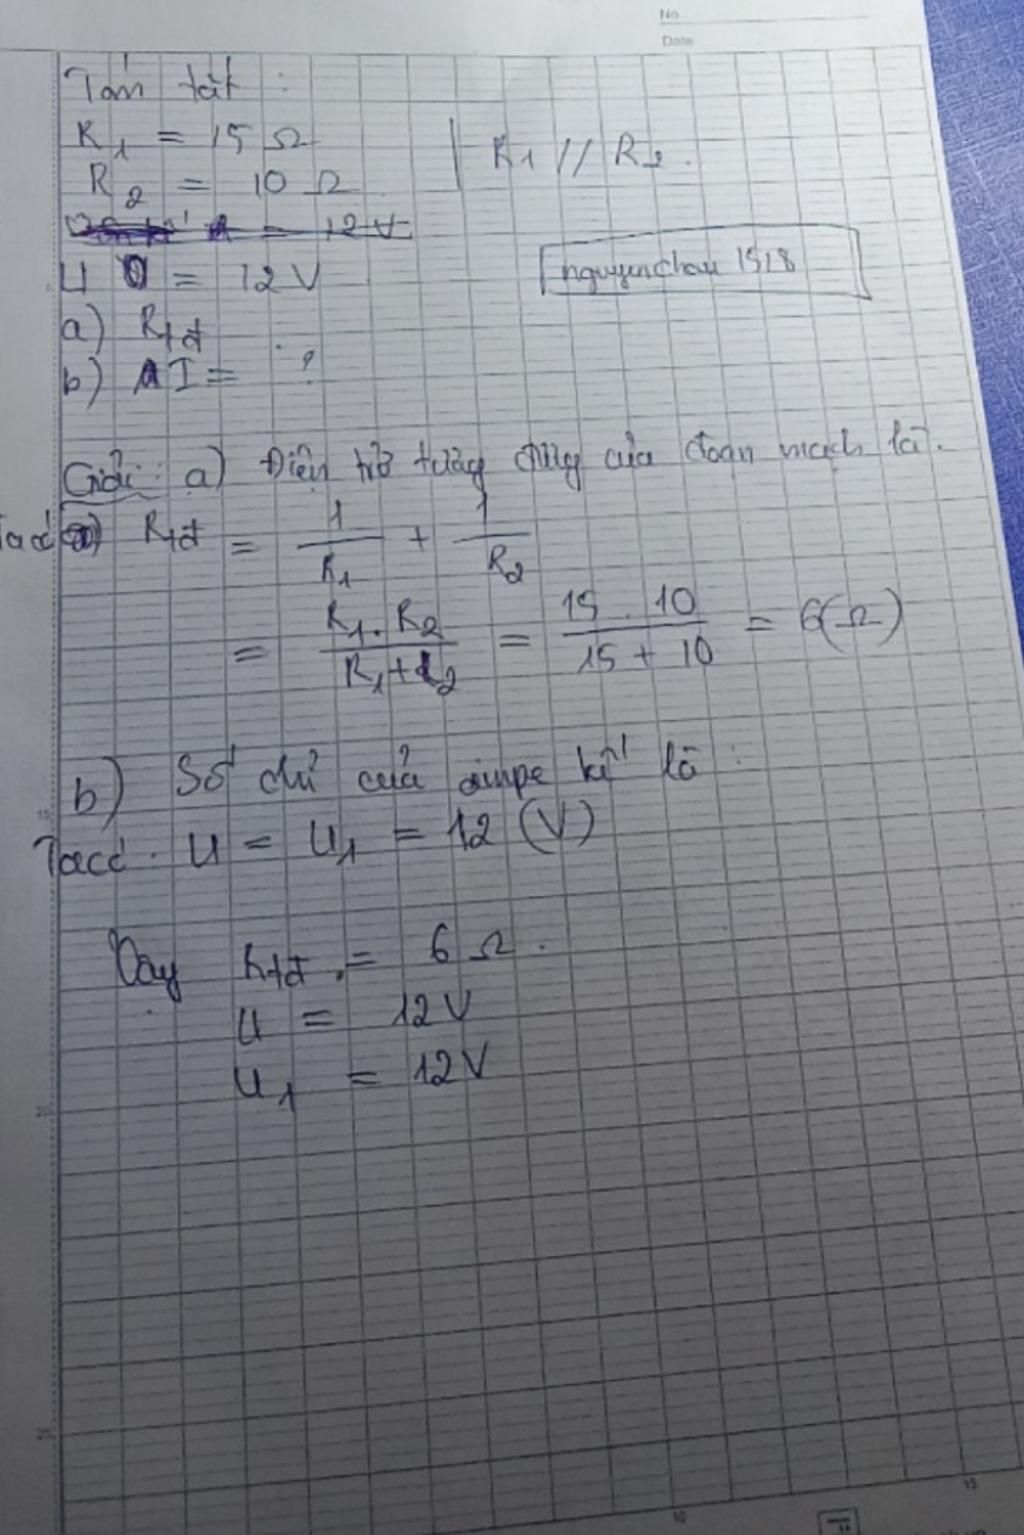 No.
Date
Tóm tắt :
R1 = 15 Ω
R1 // R2.
R2 = 10 Ω
= 12 V
U = 12 V
nguyenchau 1518
a) Rtđ
b) I = ?
Giải: a) Điện trở tương đương của đoạn mạch là.
Tacó Rtđ = 1/R1 + 1/R2
= R1.R2/R1+R2 = 15.10/15+10 = 6(Ω)
b) Số chỉ của ampe kế là :
15
Tacó. U = U1 = 12 (V)
Vậy Rtđ = 6 Ω.
U = 12 V
U1 = 12V
20
25
10
15